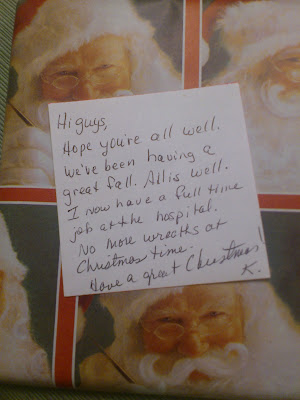 Hi guys,
Hope you're all well.
We've been having a
great fall. All is well.
I now have a full time
job at the hospital.
No more wreaths at
Christmas time.
Have a great Christmas!
K.